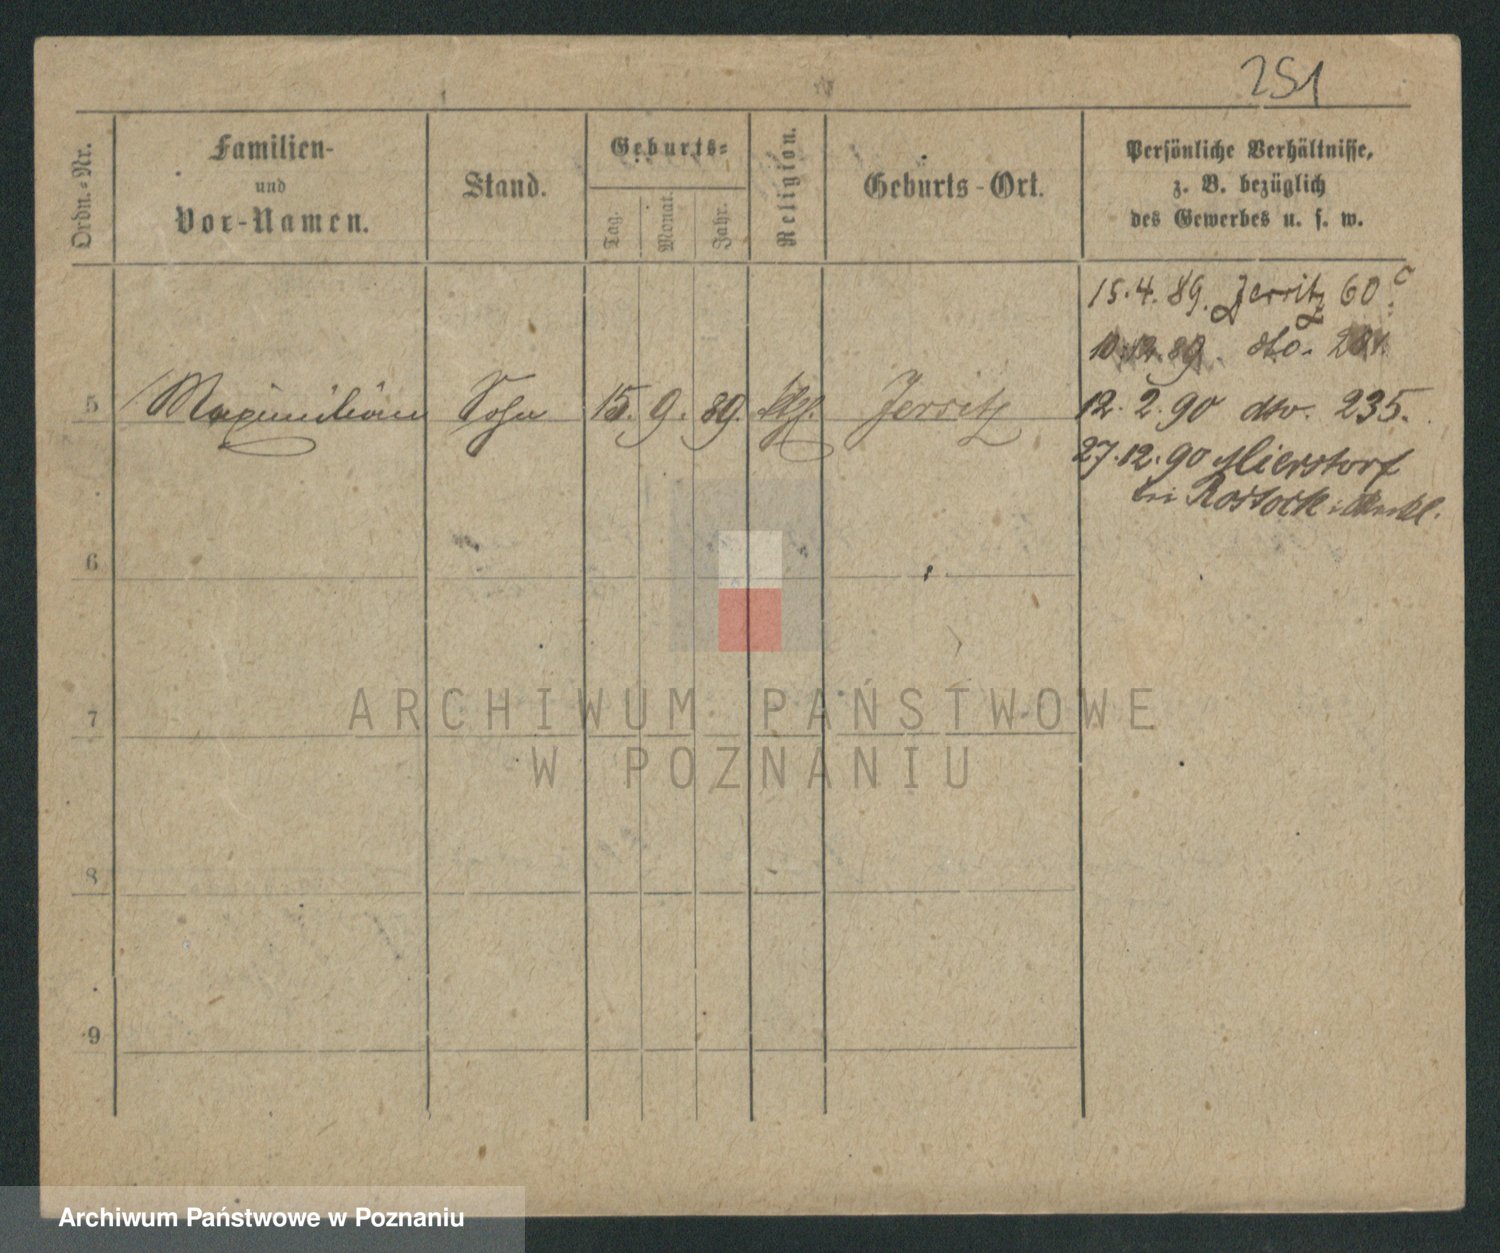 251
Ordn.-Nr.
Familien-
und
Vor-Namen.
Stand.
Geburts-
Tag.
Monat.
Jahr.
Religion.
Geburts-Ort.
Persönliche Verhältnisse,
z. B. bezüglich
des Gewerbes u. s. w.
15.4.89. Jerritz 60
10.12.89. dto.
5 Maximilian Sohn 15. 9. 89. Jerritz
12.2.90 dto. 235.
27.12.90 Mierstorf
bei Rostock i. Meckl.
6
7
8
9
ARCHIWUM PAŃSTWOWE
W POZNANIU
Archiwum Państwowe w Poznaniu